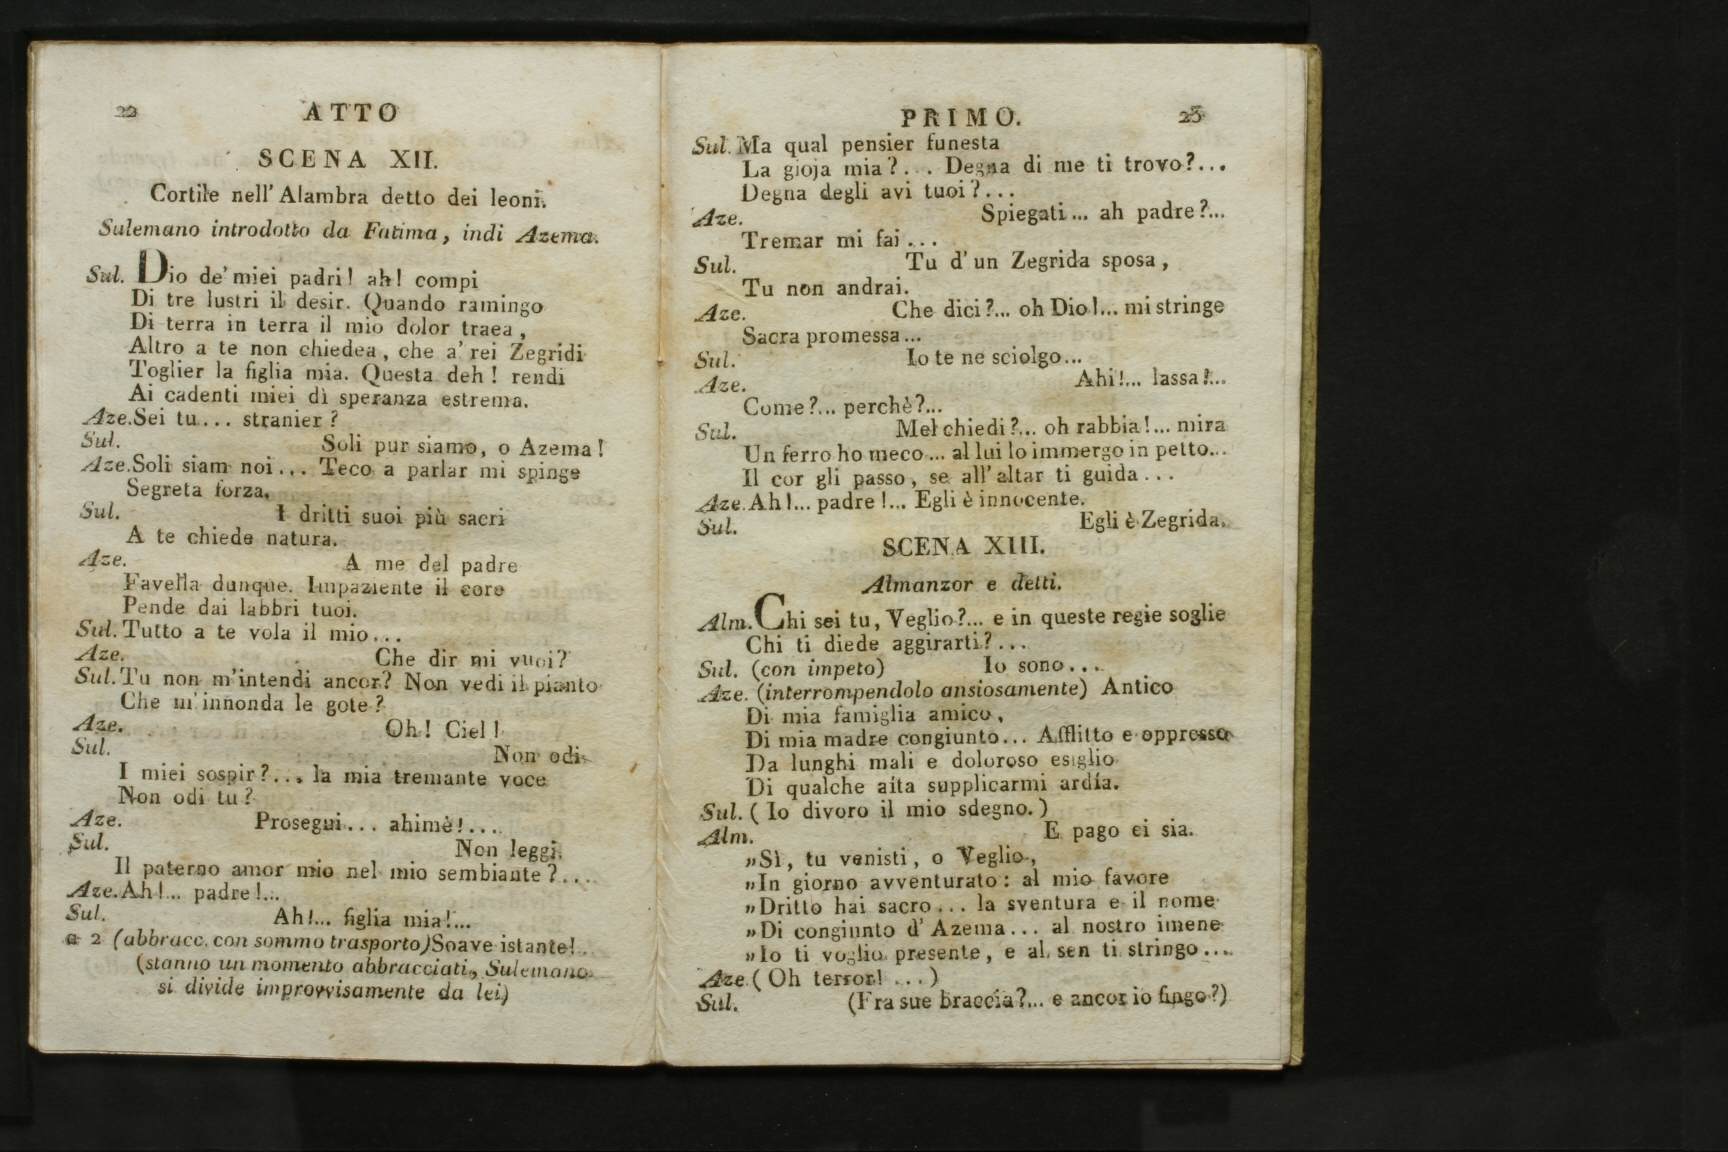 22 ATTO
SCENA XII.
Cortile nell' Alambra detto dei leoni.
Sulemano introdotto da Fatima, indi Azema.
Sul. Dio de' miei padri! ah! compi
Di tre lustri il desir. Quando ramingo
Di terra in terra il mio dolor traea,
Altro a te non chiedea, che a' rei Zegridi
Toglier la figlia mia. Questa deh! rendi
Ai cadenti miei dì speranza estrema.
Aze. Sei tu... stranier?
Sul. Soli pur siamo, o Azema!
Aze. Soli siam noi... Teco a parlar mi spinge
Segreta forza.
Sul. I dritti suoi più sacri
A te chiede natura.
Aze. A me del padre
Favella dunque. Impaziente il core
Pende dai labbri tuoi.
Sul. Tutto a te vola il mio...
Aze. Che dir mi vuoi?
Sul. Tu non m'intendi ancor? Non vedi il pianto
Che m'innonda le gote?
Aze. Oh! Ciel!
Sul. Non odi
I miei sospir?... la mia tremante voce
Non odi tu?
Aze. Prosegui... ahimè!...
Sul. Non leggi
Il paterno amor mio nel mio sembiante?...
Aze. Ah!... padre!...
Sul. Ah!... figlia mia!...
a 2 (abbracc. con sommo trasporto) Soave istante!..
(stanno un momento abbracciati, Sulemano
si divide improvvisamente da lei)
PRIMO. 23
Sul. Ma qual pensier funesta
La gioja mia?... Degna di me ti trovo?...
Degna degli avi tuoi?...
Aze. Spiegati... ah padre?...
Tremar mi fai...
Sul. Tu d'un Zegrida sposa,
Tu non andrai.
Aze. Che dici?... oh Dio!... mi stringe
Sacra promessa...
Sul. Io te ne sciolgo...
Aze. Ahi!... lassa!...
Come?... perchè?...
Sul. Mel chiedi?... oh rabbia!... mira
Un ferro ho meco... al lui lo immergo in petto...
Il cor gli passo, se all'altar ti guida...
Aze. Ah!... padre!... Egli è innocente.
Sul. Egli è Zegrida.
SCENA XIII.
Almanzor e detti.
Alm. Chi sei tu, Veglio?... e in queste regie soglie
Chi ti diede aggirarti?...
Sul. (con impeto) Io sono...
Aze. (interrompendolo ansiosamente) Antico
Di mia famiglia amico,
Di mia madre congiunto... Afflitto e oppresso
Da lunghi mali e doloroso esiglio
Di qualche aita supplicarmi ardía.
Sul. (Io divoro il mio sdegno.)
Alm. E pago ei sia.
„Sì, tu venisti, o Veglio,
„In giorno avventurato: al mio favore
„Dritto hai sacro... la sventura e il nome
„Di congiunto d'Azema... al nostro imene
„Io ti voglio presente, e al sen ti stringo...
Aze. (Oh terror!...)
Sul. (Fra sue braccia?... e ancor io fingo?)